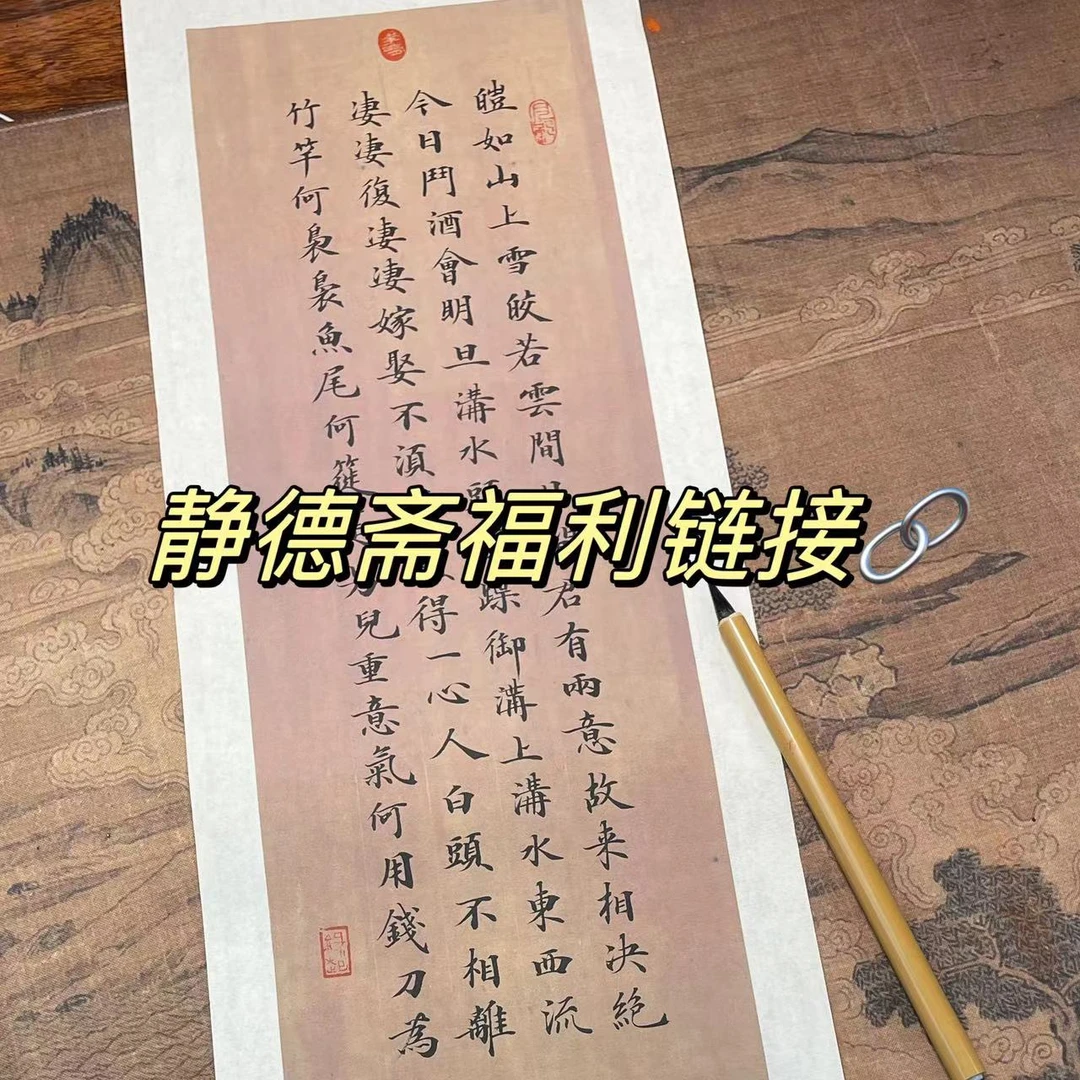 皚如山上雪皎若雲間君有兩意故来相决絶
今日鬥酒會明旦溝水頭蹀御溝上溝水東西流
淒淒復淒淒嫁娶不湏得一心人白頭不相離
竹竿何裊裊魚尾何簁兒重意氣何用錢刀為
静德斋福利链接